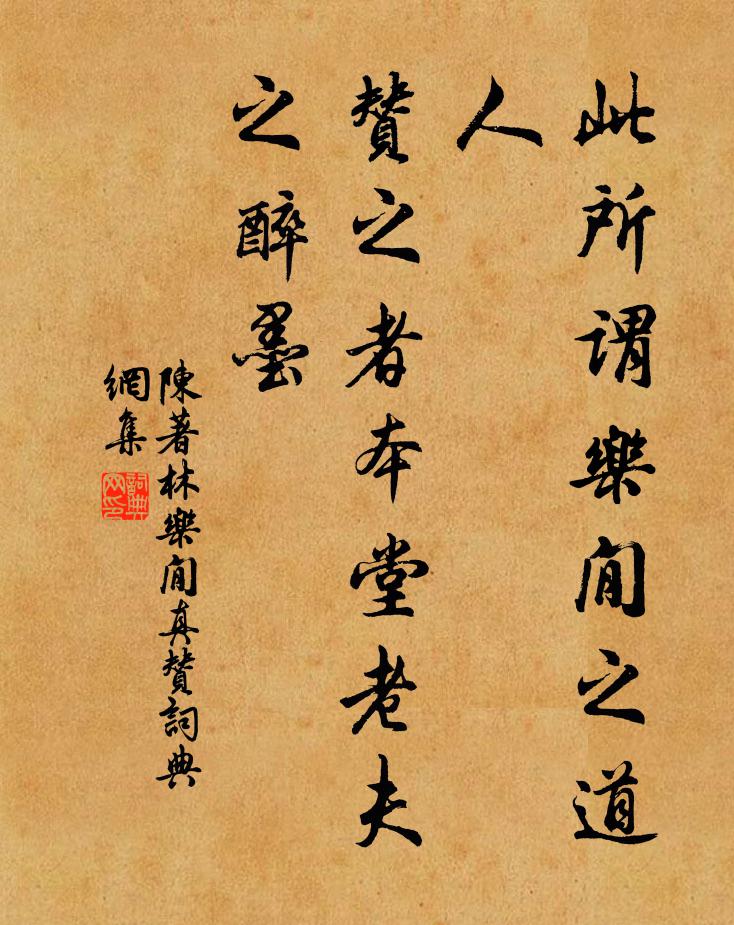 此所謂樂閒之道
人
贊之者本堂老夫
之醉墨
陳著林樂閒真贊詞典
網集
詞典
网印